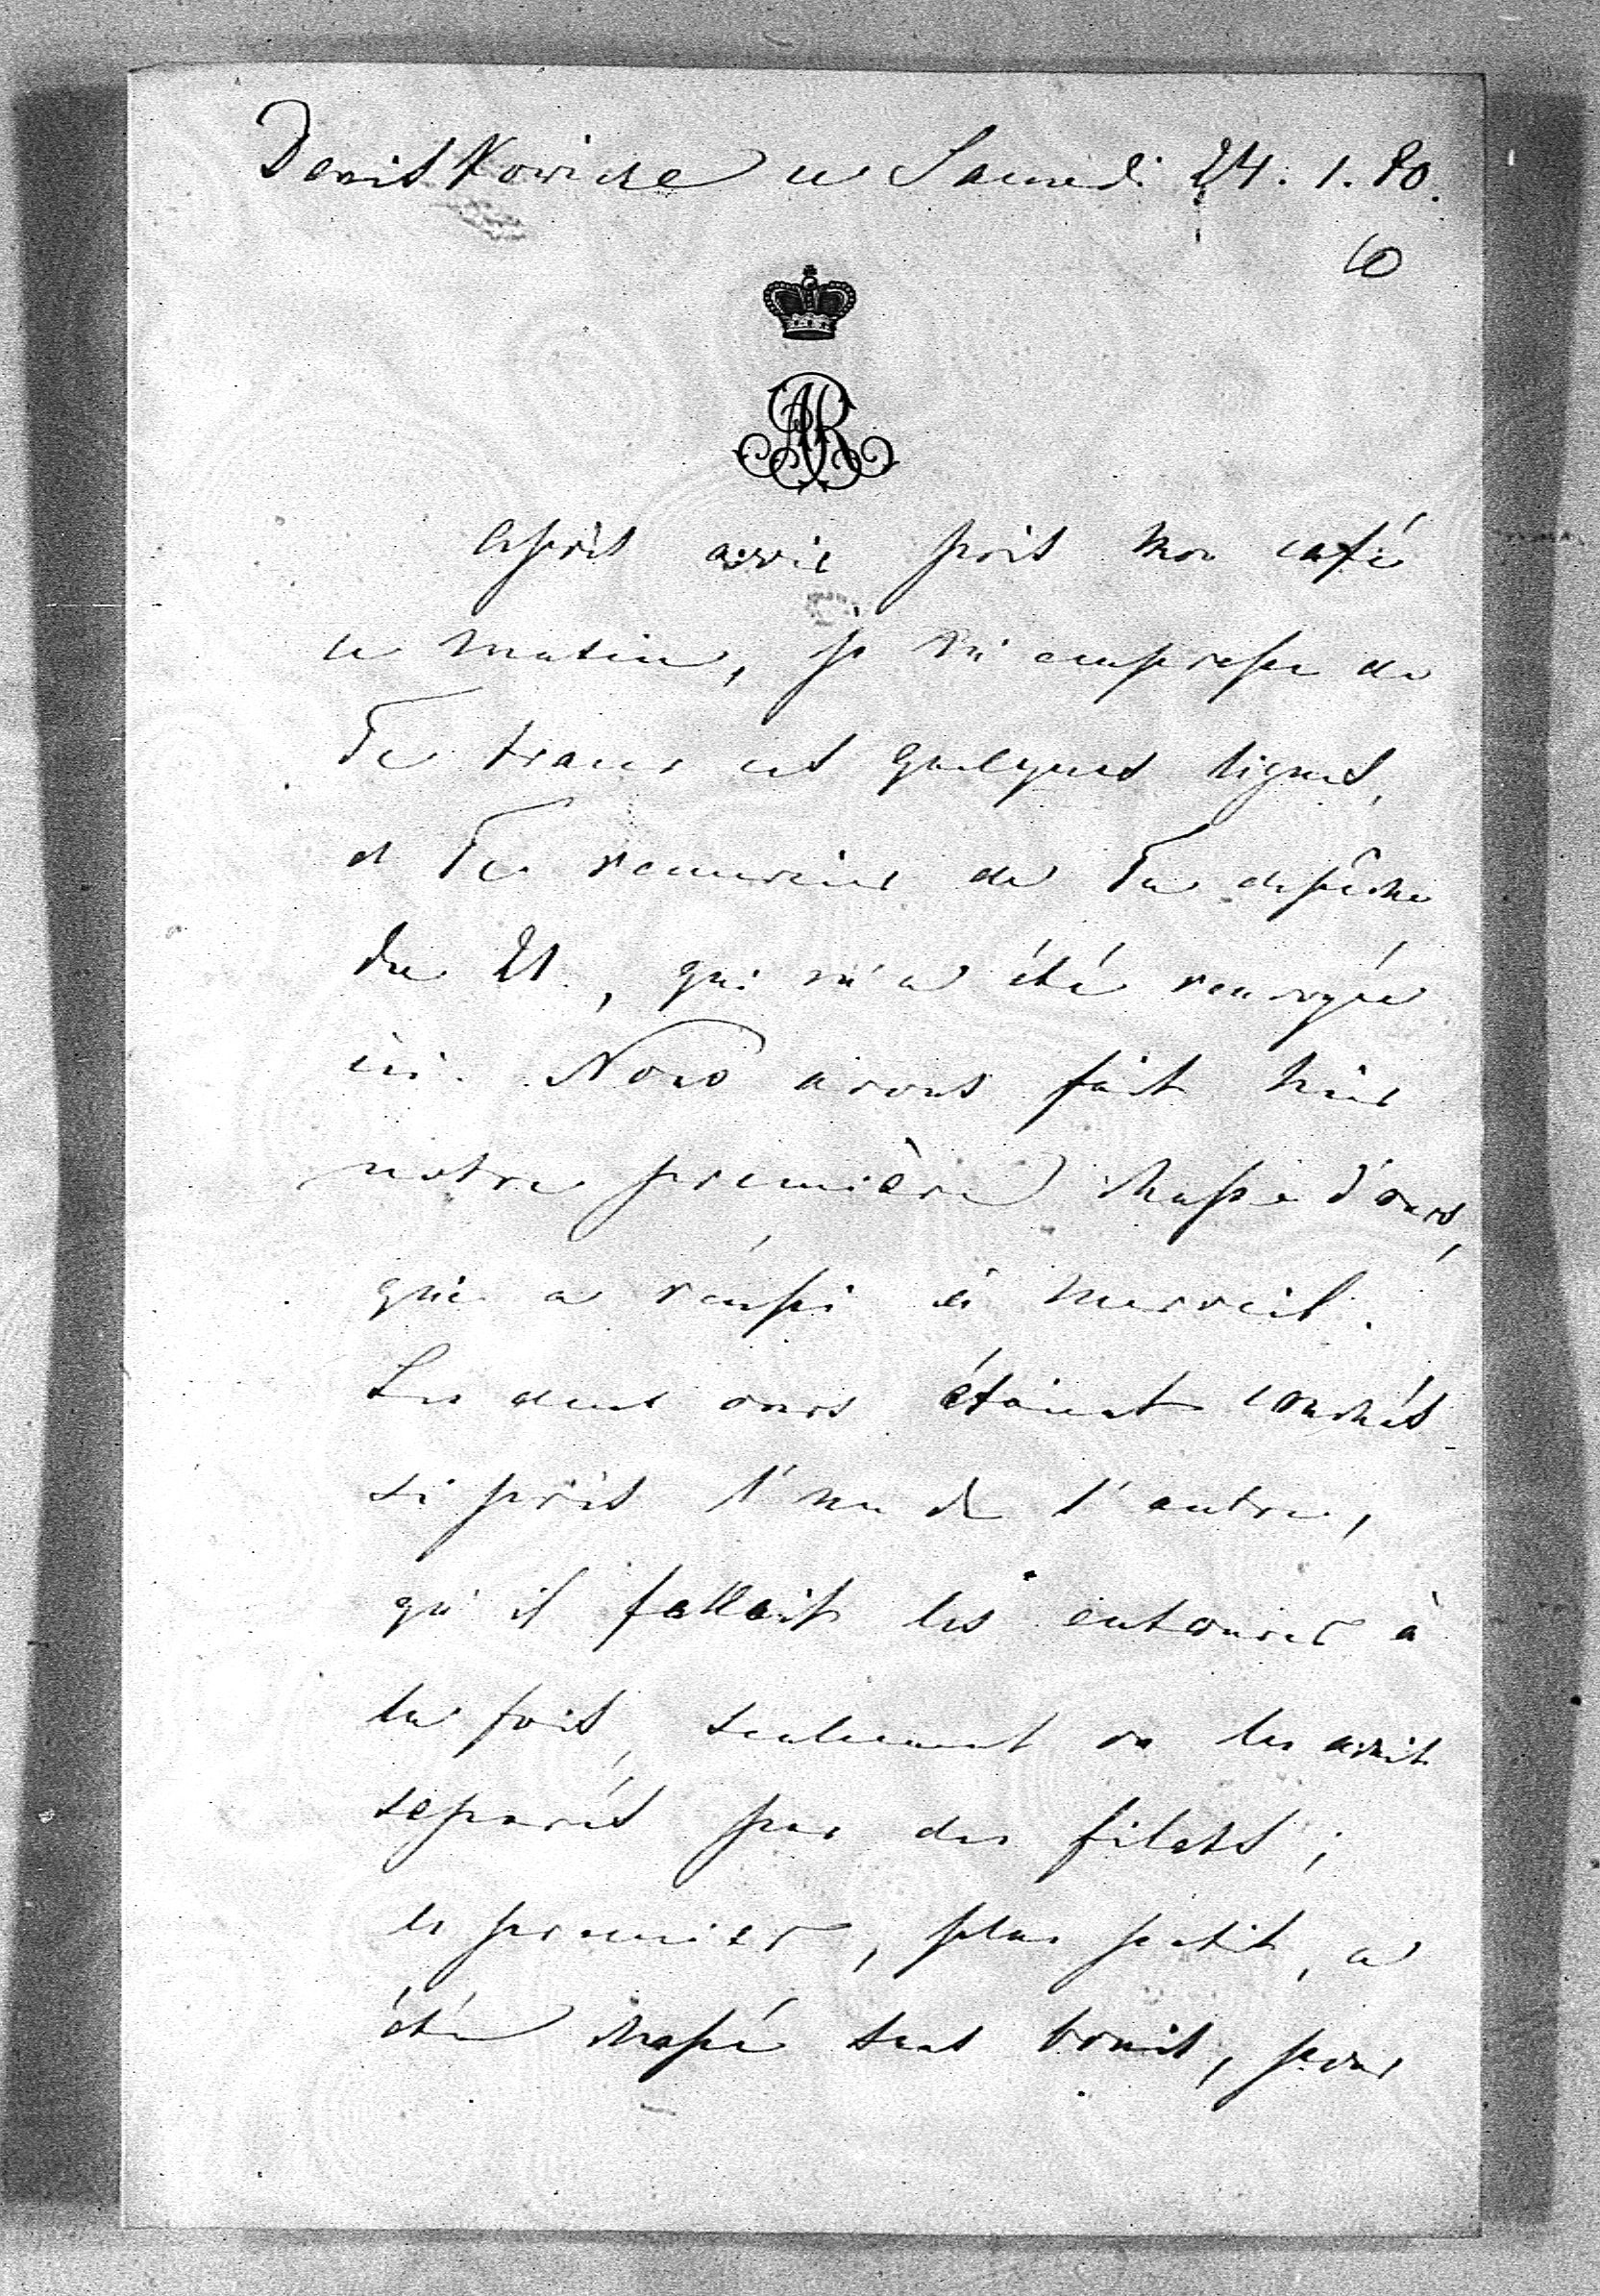 ce Samedi 24. 1. 80.
10
AR
Après avoir pris mon café
ce matin, je m'empresse de
Te tracer ces quelques lignes,
et Te remercier de Ta dépêche
du 21., qui m'a été renvoyée
ici. Nous avons fait hier
notre première chasse d'ours,
qui a réussi à merveil.
Les deux ours étaient couchés
si près l'un de l'autre,
qu'il fallait les entourer à
la fois, seulement on les avait
separés par des filets;
le premier, plus petit, a
été chassé sans bruit, pour